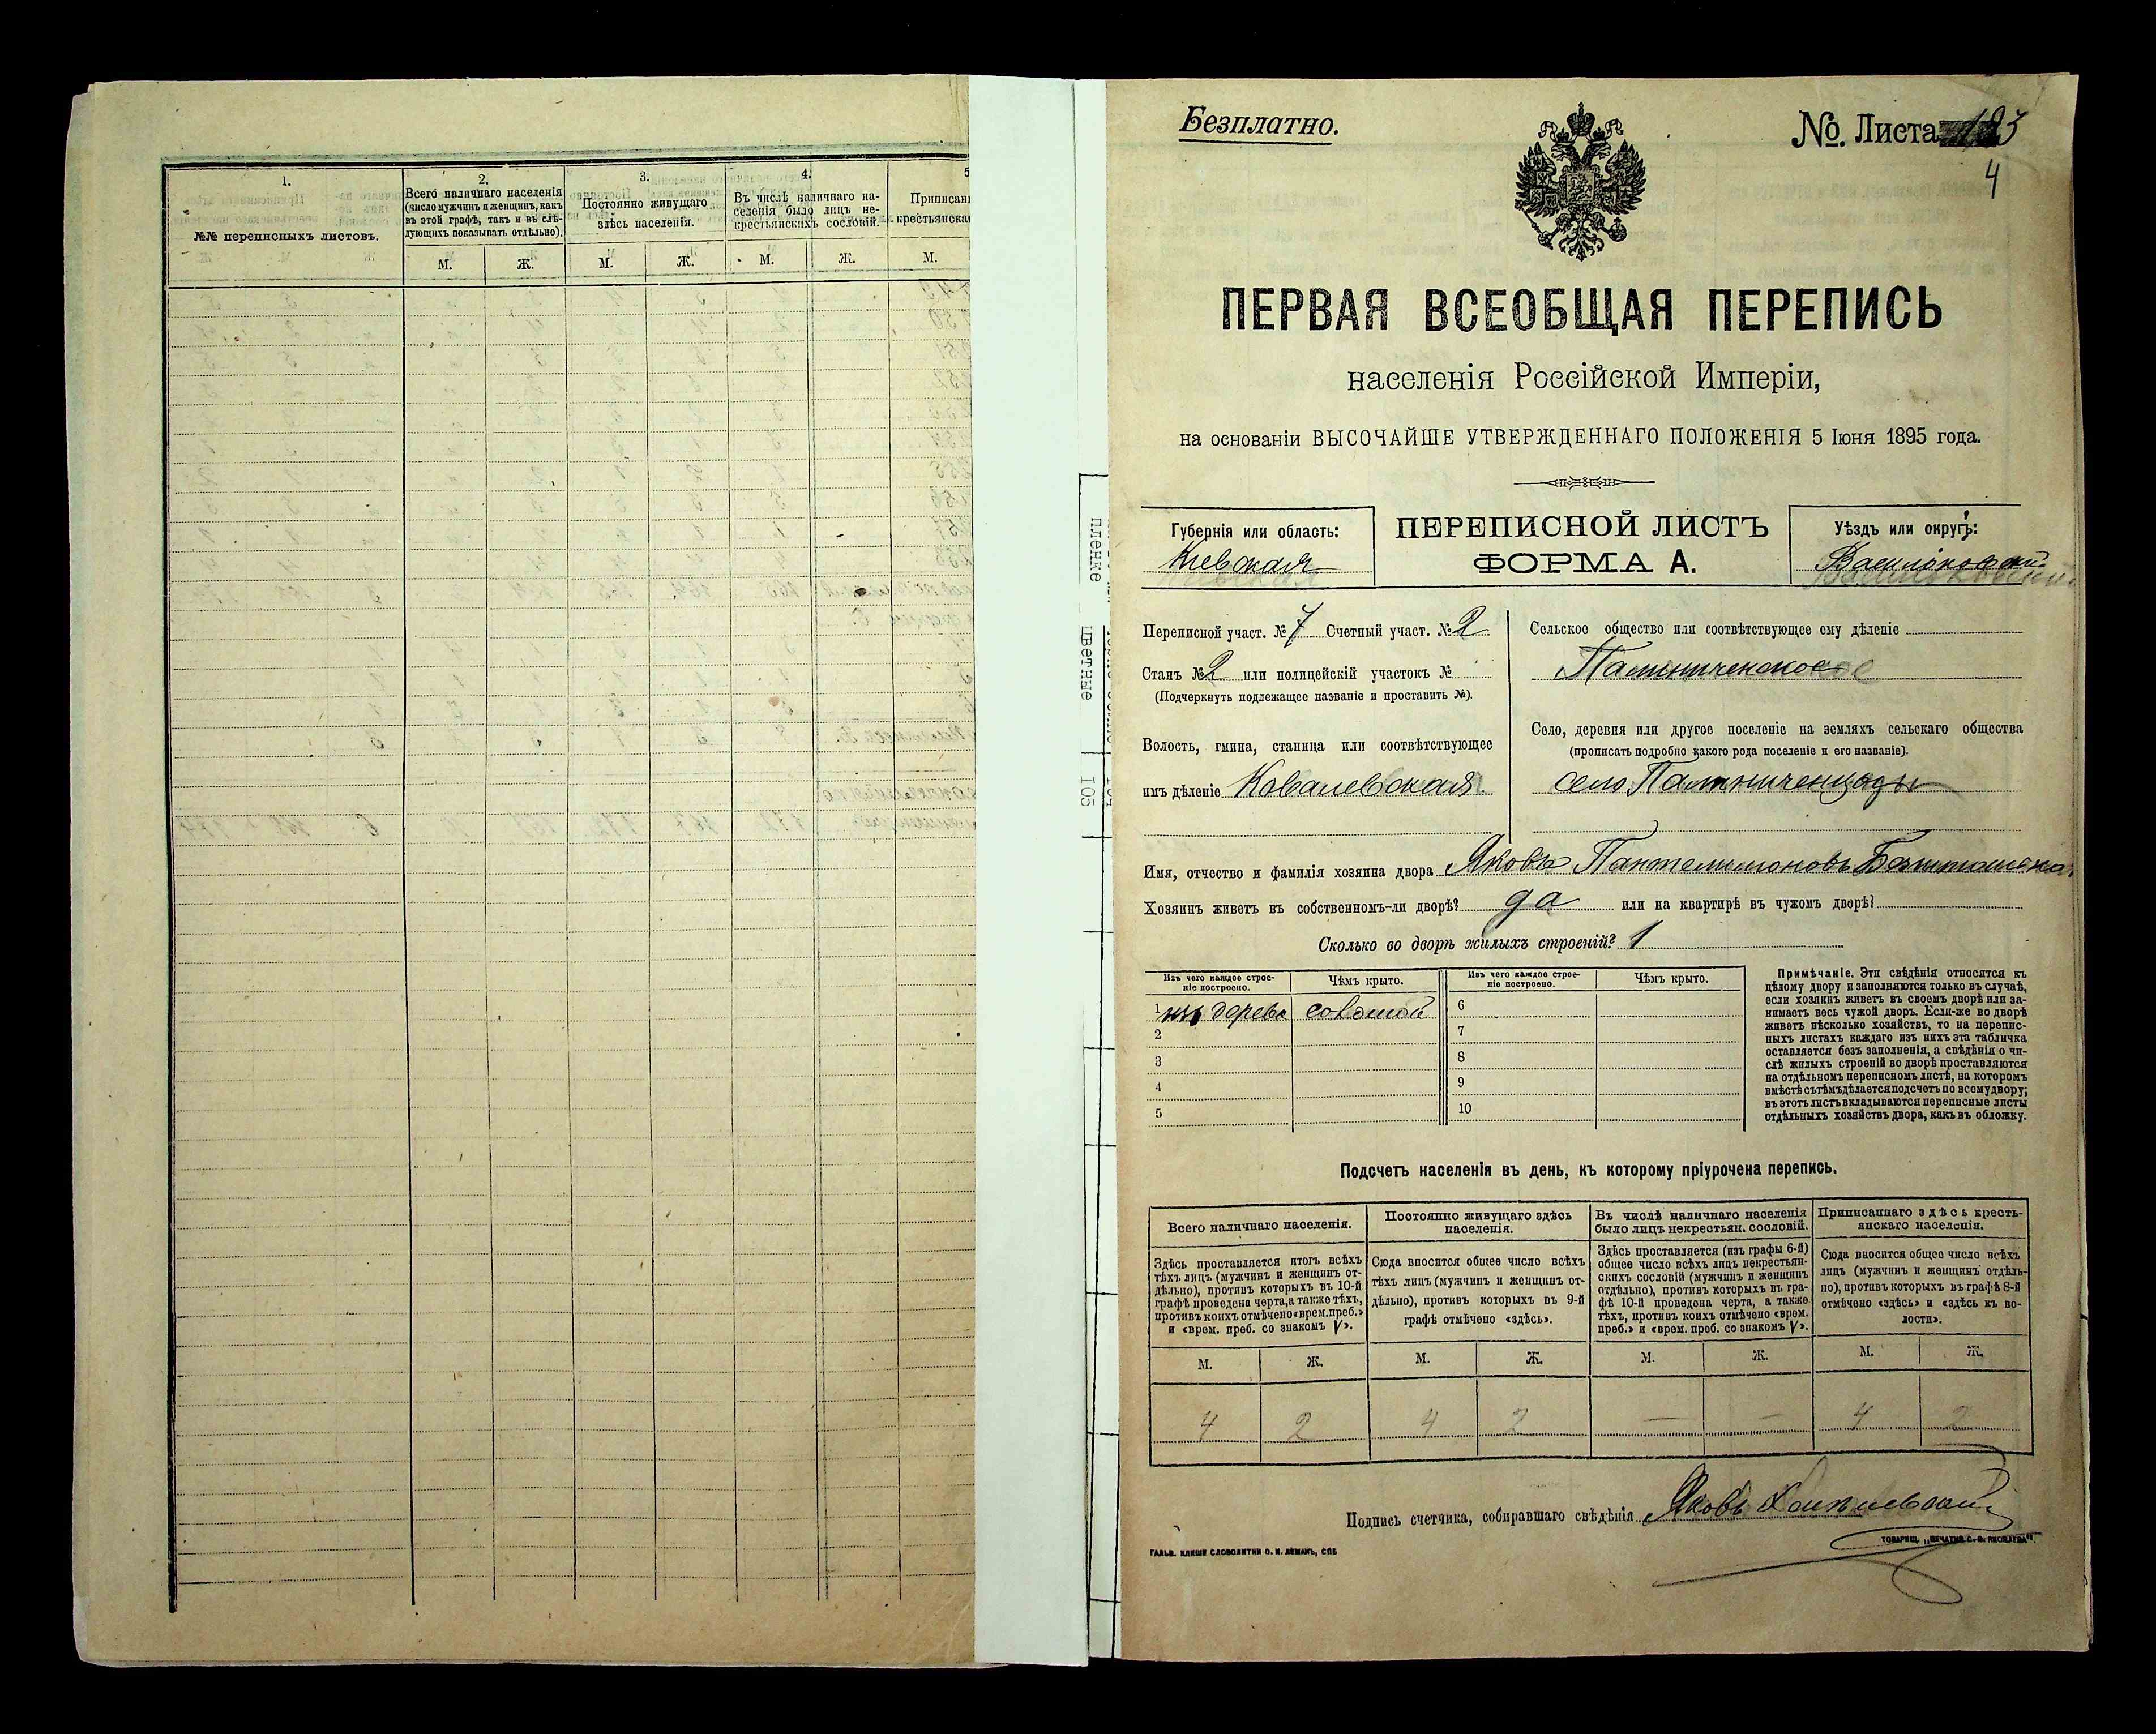 1.
№№ переписныхъ листовъ.
2.
Всего наличнаго населенія
(число мужчинъ и женщинъ, какъ
въ этой графѣ, такъ и въ слѣ-
дующихъ показывать отдѣльно).
3.
Постоянно живущаго
здѣсь населенія.
4.
Въ числѣ наличнаго на-
селенія было лицъ не-
крестьянскихъ сословій.
5
Приписан
крестьянска
М. Ж. М. Ж. М. Ж. М.
пленке
цветные
105
Безплатно.
№. Листа 123
4
ПЕРВАЯ ВСЕОБЩАЯ ПЕРЕПИСЬ
населенія Россійской Имперіи,
на основаніи ВЫСОЧАЙШЕ УТВЕРЖДЕННАГО ПОЛОЖЕНІЯ 5 Іюня 1895 года.
Губернія или область:
Кіевская
ПЕРЕПИСНОЙ ЛИСТЪ
ФОРМА А.
Уѣздъ или округъ:
Переписной участ. № 7 Счетный участ. № 2
Станъ № 2 или полицейскій участокъ №
(Подчеркнуть подлежащее названіе и проставить №).
Волость, гмина, станица или соотвѣтствующее
имъ дѣленіе Ковалевская
Сельское общество или соотвѣтствующее ему дѣленіе
Село, деревня или другое поселеніе на земляхъ сельскаго общества
(прописать подробно какого рода поселеніе и его названіе).
село
Имя, отчество и фамилія хозяина двора Яковъ Пантелимоновъ
Хозяинъ живетъ въ собственномъ-ли дворѣ? да или на квартирѣ въ чужомъ дворѣ?
Сколько во дворѣ жилыхъ строеній? 1
Изъ чего каждое строе-
ніе построено.
Чѣмъ крыто.
Изъ чего каждое строе-
ніе построено.
Чѣмъ крыто.
1 изъ дерева соломой 6
2 7
3 8
4 9
5 10
Примѣчаніе. Эти свѣдѣнія относятся къ
цѣлому двору и заполняются только въ случаѣ,
если хозяинъ живетъ въ своемъ дворѣ или за-
нимаетъ весь чужой дворъ. Если-же во дворѣ
живетъ нѣсколько хозяйствъ, то на перепис-
ныхъ листахъ каждаго изъ нихъ эта табличка
оставляется безъ заполненія, а свѣдѣнія о чи-
слѣ жилыхъ строеній во дворѣ проставляются
на отдѣльномъ переписномъ листѣ, на которомъ
вмѣстѣ съ тѣмъ дѣлается подсчетъ по всему двору;
въ этотъ листъ вкладываются переписные листы
отдѣльныхъ хозяйствъ двора, какъ въ обложку.
Подсчетъ населенія въ день, къ которому пріурочена перепись.
Всего наличнаго населенія.
Здѣсь проставляется итогъ всѣхъ
тѣхъ лицъ (мужчинъ и женщинъ от-
дѣльно), противъ которыхъ въ 10-й
графѣ проведена черта, а также тѣхъ,
противъ коихъ отмѣчено «врем. преб.»
и «врем. преб. со знакомъ V».
Постоянно живущаго здѣсь
населенія.
Сюда вносится общее число всѣхъ
тѣхъ лицъ (мужчинъ и женщинъ от-
дѣльно), противъ которыхъ въ 9-й
графѣ отмѣчено «здѣсь».
Въ числѣ наличнаго населенія
было лицъ некрестьян. сословій.
Здѣсь проставляется (изъ графы 6-й)
общее число всѣхъ лицъ некрестьян-
скихъ сословій (мужчинъ и женщинъ
отдѣльно), противъ которыхъ въ гра-
фѣ 10-й проведена черта, а также
тѣхъ, противъ коихъ отмѣчено «врем.
преб.» и «врем. преб. со знакомъ V».
Приписаннаго здѣсь кресть-
янскаго населенія.
Сюда вносится общее число всѣхъ
лицъ (мужчинъ и женщинъ отдѣль-
но), противъ которыхъ въ графѣ 8-й
отмѣчено «здѣсь» и «здѣсь къ во-
лости».
М. Ж. М. Ж. М. Ж. М. Ж.
4 2 4 2 — — 4 2
Подпись счетчика, собиравшаго свѣдѣнія Яковъ
ГАЛЬВ. КЛИШЕ СЛОВОЛИТНИ О. И. ЛЕМАНЪ, СПБ
ТОВАРИЩ. „ПЕЧАТНЯ С. П. ЯКОВЛЕВА".